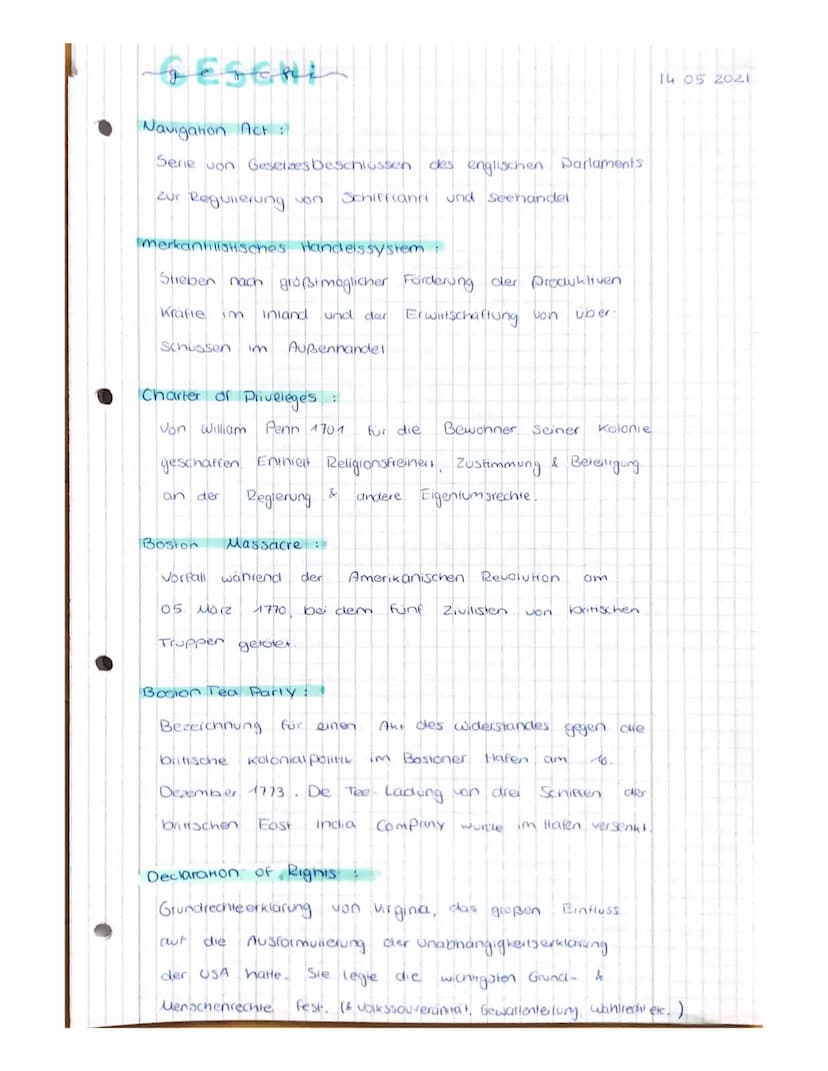 GESCHI
geschi
14 05 2021
Navigation Act :
Serie von Gesetzesbeschlüssen des englischen Parlaments
zur Regulierung von Schifffahrt und Seehandel
merkantilistisches Handelssystem :
Streben nach größtmöglicher Förderung der produktiven
Kräfte im Inland und der Erwirtschaftung von über-
schüssen im Außenhandel
Charter of Priveleges :
Von William Penn 1701 für die Bewohner seiner Kolonie
geschaffen Enthielt Religionsfreiheit, Zustimmung & Beteiligung
an der Regierung & andere Eigentumsrechte.
Boston Massacre :
Vorfall während der Amerikanischen Revolution am
05 März 1770, bei dem fünf Zivilisten von britischen
Truppen getötet.
Boston Tea Party :
Bezeichnung für einen Akt des Widerstandes gegen die
britische Kolonialpolitik im Bostoner Hafen am 16.
Dezember 1773. De Tee-Ladung von drei Schiffen der
britischen East India Company wurde im Hafen versenkt.
Declaration of Rights :
Grundrechteerklärung von Virgina, das großen Einfluss
auf die Ausformulierung der Unabhängigkeitserklärung
der USA hatte. Sie legte die wichtigsten Grund- &
Menschenrechte fest. (& Volkssouveränität, Gewaltenteilung, Wahlrecht etc.)